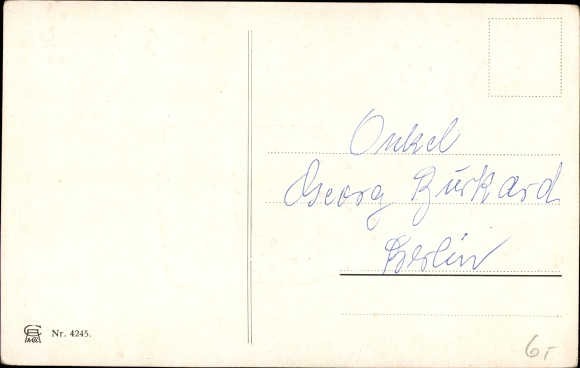 Onkel
Georg Burkard
Berlin
Nr. 4245.
6,-